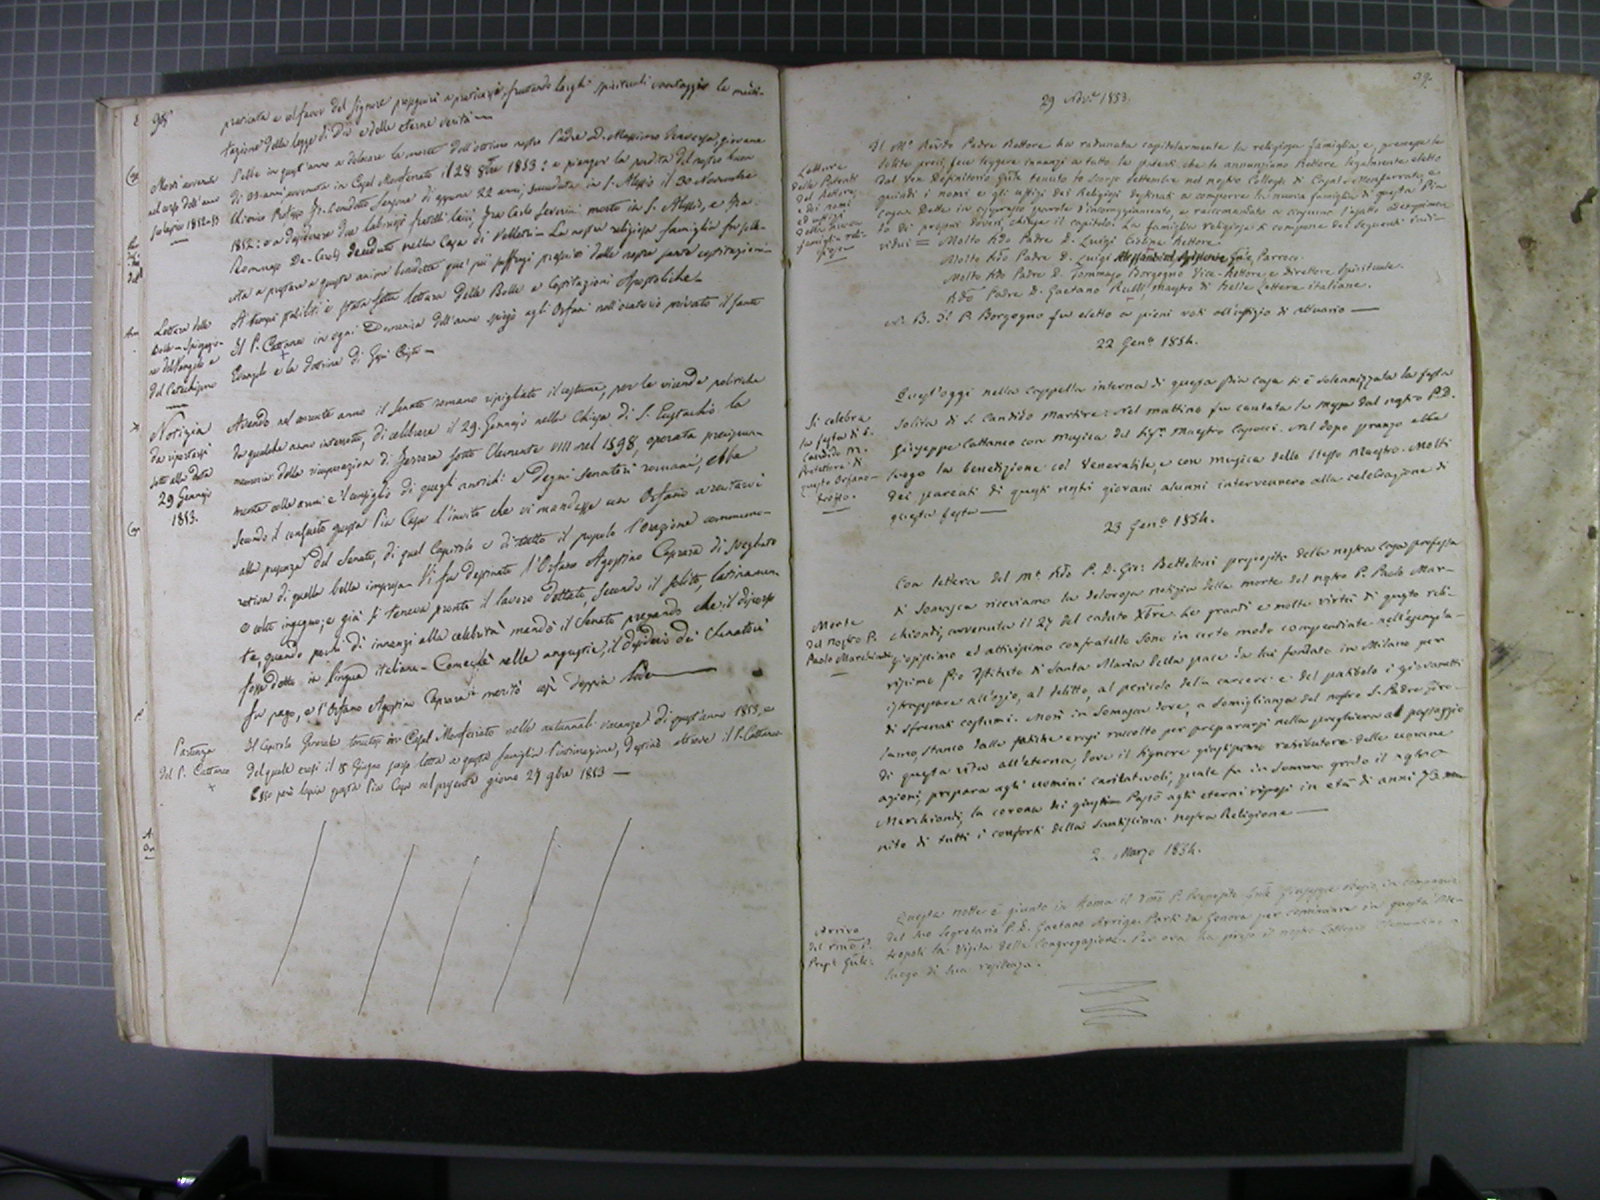 98
praticata e col favor del Signore proseguirà a praticarsi, fruttando larghi spirituali vantaggi la medi-
tazione della legge di Dio e delle eterne verità —
Morti avvenute
nel corso dell'anno
scolastico 1852-53
Volle in quest'anno a dolorare la morte dell'ottimo nostro Padre D. Massimo giovane
di 33 anni avvenuta in Casal Monferrato il 28 1853: e pianger la perdita del nostro buon
Chierico Professo Benedetto di appena 22 anni, succeduta in S. Alessio il 30 Novembre
1852: e a desiderare due laboriosi fratelli laici, Fra Carlo Severini morto in S. Alessio, e Fra
Tommaso De-Carolis decaduto nella Casa di Velletri — La nostra religiosa famiglia fu solle-
cita a prestare a queste anime benedette que' pii suffragi prescritti dalle nostre sante costituzioni —
Lettura delle
Bolle — Spiegazio-
ne del Vangelo e
del Catechismo
A' tempi stabiliti è stata fatta lettura delle Bolle e Costituzioni Apostoliche —
Il P. Cattaneo in ogni Domenica dell'anno spiegò agli Orfani nell'oratorio privato il santo
Evangelo e la dottrina di Gesù Cristo —
Notizia
da riportarsi
sotto alla data
29 Gennajo
1853.
Avendo nel corrente anno il Senato romano ripigliato il costume, per le vicende politiche
da qualche anno interrotto, di celebrare il 29. Gennajo nella Chiesa di S. Eustachio la
memoria della ricuperazione di Ferrara sotto Clemente VIII nel 1598, operata precipua-
mente colle armi e 'l consiglio di quegli antichi e degni senatori romani, ebbe
secondo il consueto questa Pia Casa l'invito che vi mandasse un Orfano a recitarvi
alla presenza del Senato, di quel Capitolo e di tutto il popolo l'Orazione commemo-
rativa di quella bella impresa. Vi fu destinato l'Orfano Agostino Caprara di svegliato
e colto ingegno; e già si teneva pronto il lavoro dettato, secondo il solito, latinamen
te, quando pochi dì innanzi alla celebrità mandò il Senato pregando che il discorso
fosse detto in lingua italiana — Comechè nelle angustie, il desiderio dei Senatori
fu pago, e l'Orfano Agostino Caprara meritò così doppia lode —
Partenza
del P. Cattaneo
Il Capitolo Generale tenutosi in Casal Monferrato nelle autunnali vacanze di quest'anno 1853, e
del quale erasi il 18 Giugno scorso letta a questa famiglia l'intimazione, destinò altrove il P. Cattaneo
Esso però lascia questa Pia Casa nel presente giorno 27 9bre 1853 —
99.
29 Nov.e 1853.
Lettura
delle Patenti
del Rettore,
e dei nomi
ed uffizi
della nuova
famiglia reli-
giosa
Il M.o Rev.do Padre Rettore ha radunata capitolarmente la religiosa famiglia e, premesse le
solite preci, fece leggere innanzi a tutto la patente che lo annunziano Rettore legalmente eletto
dal Ven. Definitorio Gnle tenuto lo scorso settembre nel nostro Collegio di Casal-Monferrato, e
quindi i nomi e gli uffizi dei Religiosi destinati a comporre la nuova famiglia di questa Pia
Casa. Dette in appresso parole d'incoraggiamento, e raccomandato a ciascuno l'esatto adempimen
to dei proprii doveri, chiuse il capitolo. La famiglia religiosa si compone dei seguenti indi-
vidui = Molto Rdo Padre D. Luigi Rettore.
Molto Rdo Padre D. Luigi Parroco.
Molto Rdo Padre D. Tommaso Borgogno Vice-Rettore e Direttore Spirituale.
Rdo Padre D. Gaetano Rulli, maestro di Belle Lettere italiane.
N. B. Il P. Borgogno fu eletto a pieni voti all'uffizio di attuario —
22 Gen.o 1854.
Si celebra
la festa di S.
Candido M.
Protettore di
questo Orfano-
trofio.
Quest'oggi nella Cappella interna di questa Pia casa si è solennizzata la festa
solita di S. Candido Martire: Nel mattino fu cantata la messa dal nostro P. D.
Giuseppe Cattaneo con musica del Sig.r Maestro Capocci. Nel dopo pranzo ebbe
luogo la benedizione col Venerabile, e con musica dello stesso Maestro. Molti
dei parenti di questi nostri giovani alunni intervennero alla celebrazione di
questa festa —
23 Gen.o 1854.
Morte
del nostro P.
Paolo Marchiondi
Con lettera del M.o Rdo P. D. Gir: Bettoloni preposito della nostra casa professa
di Somasca riceviamo la dolorosa notizia della morte del nostro P. Paolo Mar-
chiondi, avvenuta il 27 del caduto Xbre. Le grandi e molte virtù di questo reli-
giosissimo ed attivissimo confratello sono in certo modo compendiate nell'esempla-
rissimo Pio Istituto di Santa Maria della pace da lui fondato in Milano per
istrappare all'ozio, al delitto, al pericolo della carcere e del patibolo i giovanetti
di sfrenati costumi. Morì in Somasca dove, a somiglianza del nostro S. Padre Giro-
lamo, stanco dalle fatiche erasi raccolto per prepararsi nella preghiera al passaggio
di questa vita all'eterna, dove il Signore giustissimo retributore delle umane
azioni, prepara agli uomini caritatevoli, quale fu in sommo grado il nostro
Marchiondi, la corona dei giusti. Passò agli eterni riposi in età di anni 73 mu
nito di tutti i conforti della Santissima nostra Religione —
2. Marzo 1854.
Arrivo
del Rmo P.
Prep.t Gnle:
Questa notte è giunto in Roma il Rmo P. Preposito Gnle Giuseppe in compagnia
del suo Segretario P. D. Gaetano Arrigo. Partì da Genova per cominciare in questa Me-
tropoli la Visita della Congregazione. Per ora ha preso il nostro Collegio Clementino a
luogo di sua residenza.